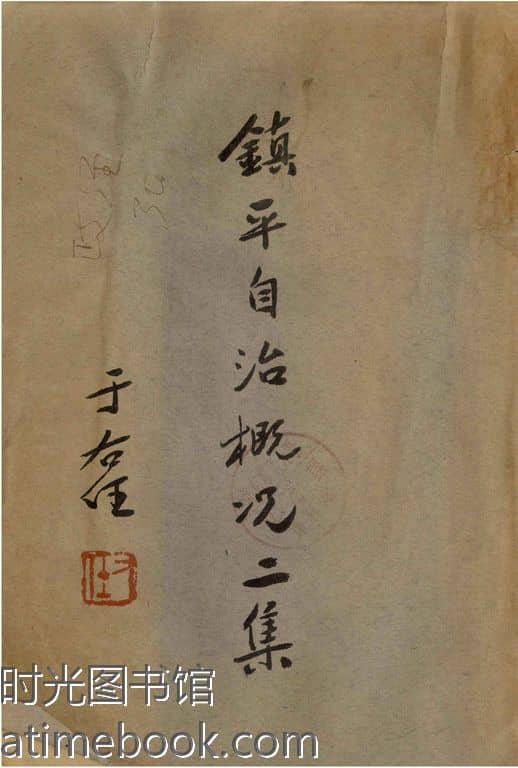 鎮平自治概況二集
于右任
时光图书馆
atimebook.com